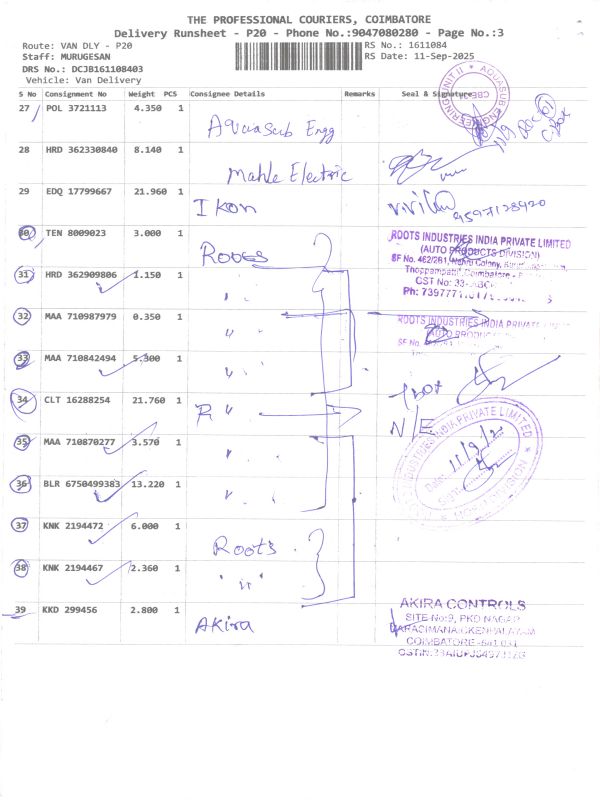 THE PROFESSIONAL COURIERS, COIMBATORE
Delivery Runsheet - P20 - Phone No.:9047080280 - Page No.:3
Route: VAN DLY - P20
RS No.: 1611084
Staff: MURUGESAN
RS Date: 11-Sep-2025
DRS No.: DCJB161108403
Vehicle: Van Delivery
S No Consignment No Weight PCS Consignee Details Remarks Seal & Signature
27 POL 3721113 4.350 1 Aquasub Engg
AQUASUB ENGINEERING UNIT II
28 HRD 362330840 8.140 1 Mahle Electric
29 EDQ 17799667 21.960 1 Ikon
9597128920
30 TEN 8009023 3.000 1 Roots
ROOTS INDUSTRIES INDIA PRIVATE LIMITED
(AUTO PRODUCTS DIVISION)
SF No. 462/2B1, Nehru Colony,
Thoppampatti, Coimbatore -
GST No: 33
Ph: 739777
31 HRD 362909806 1.150 1 "
32 MAA 710987979 0.350 1 "
ROOTS INDUSTRIES INDIA PRIVATE
AUTO PRODUCTS
SF No.
33 MAA 710842494 5.300 1 "
34 CLT 16288254 21.760 1 R "
1 Box
N/E
35 MAA 710870277 3.570 1 "
INDUSTRIES INDIA PRIVATE LIMITED
Date: 11/9/2
DIVISION
36 BLR 6750499383 13.220 1 "
37 KNK 2194472 6.000 1 Roots
38 KNK 2194467 2.360 1 "
39 KKD 299456 2.800 1 Akira
AKIRA CONTROLS
SITE No:9, PKD NAGAR
NARASIMANAICKENPALAYAM
COIMBATORE -641 031